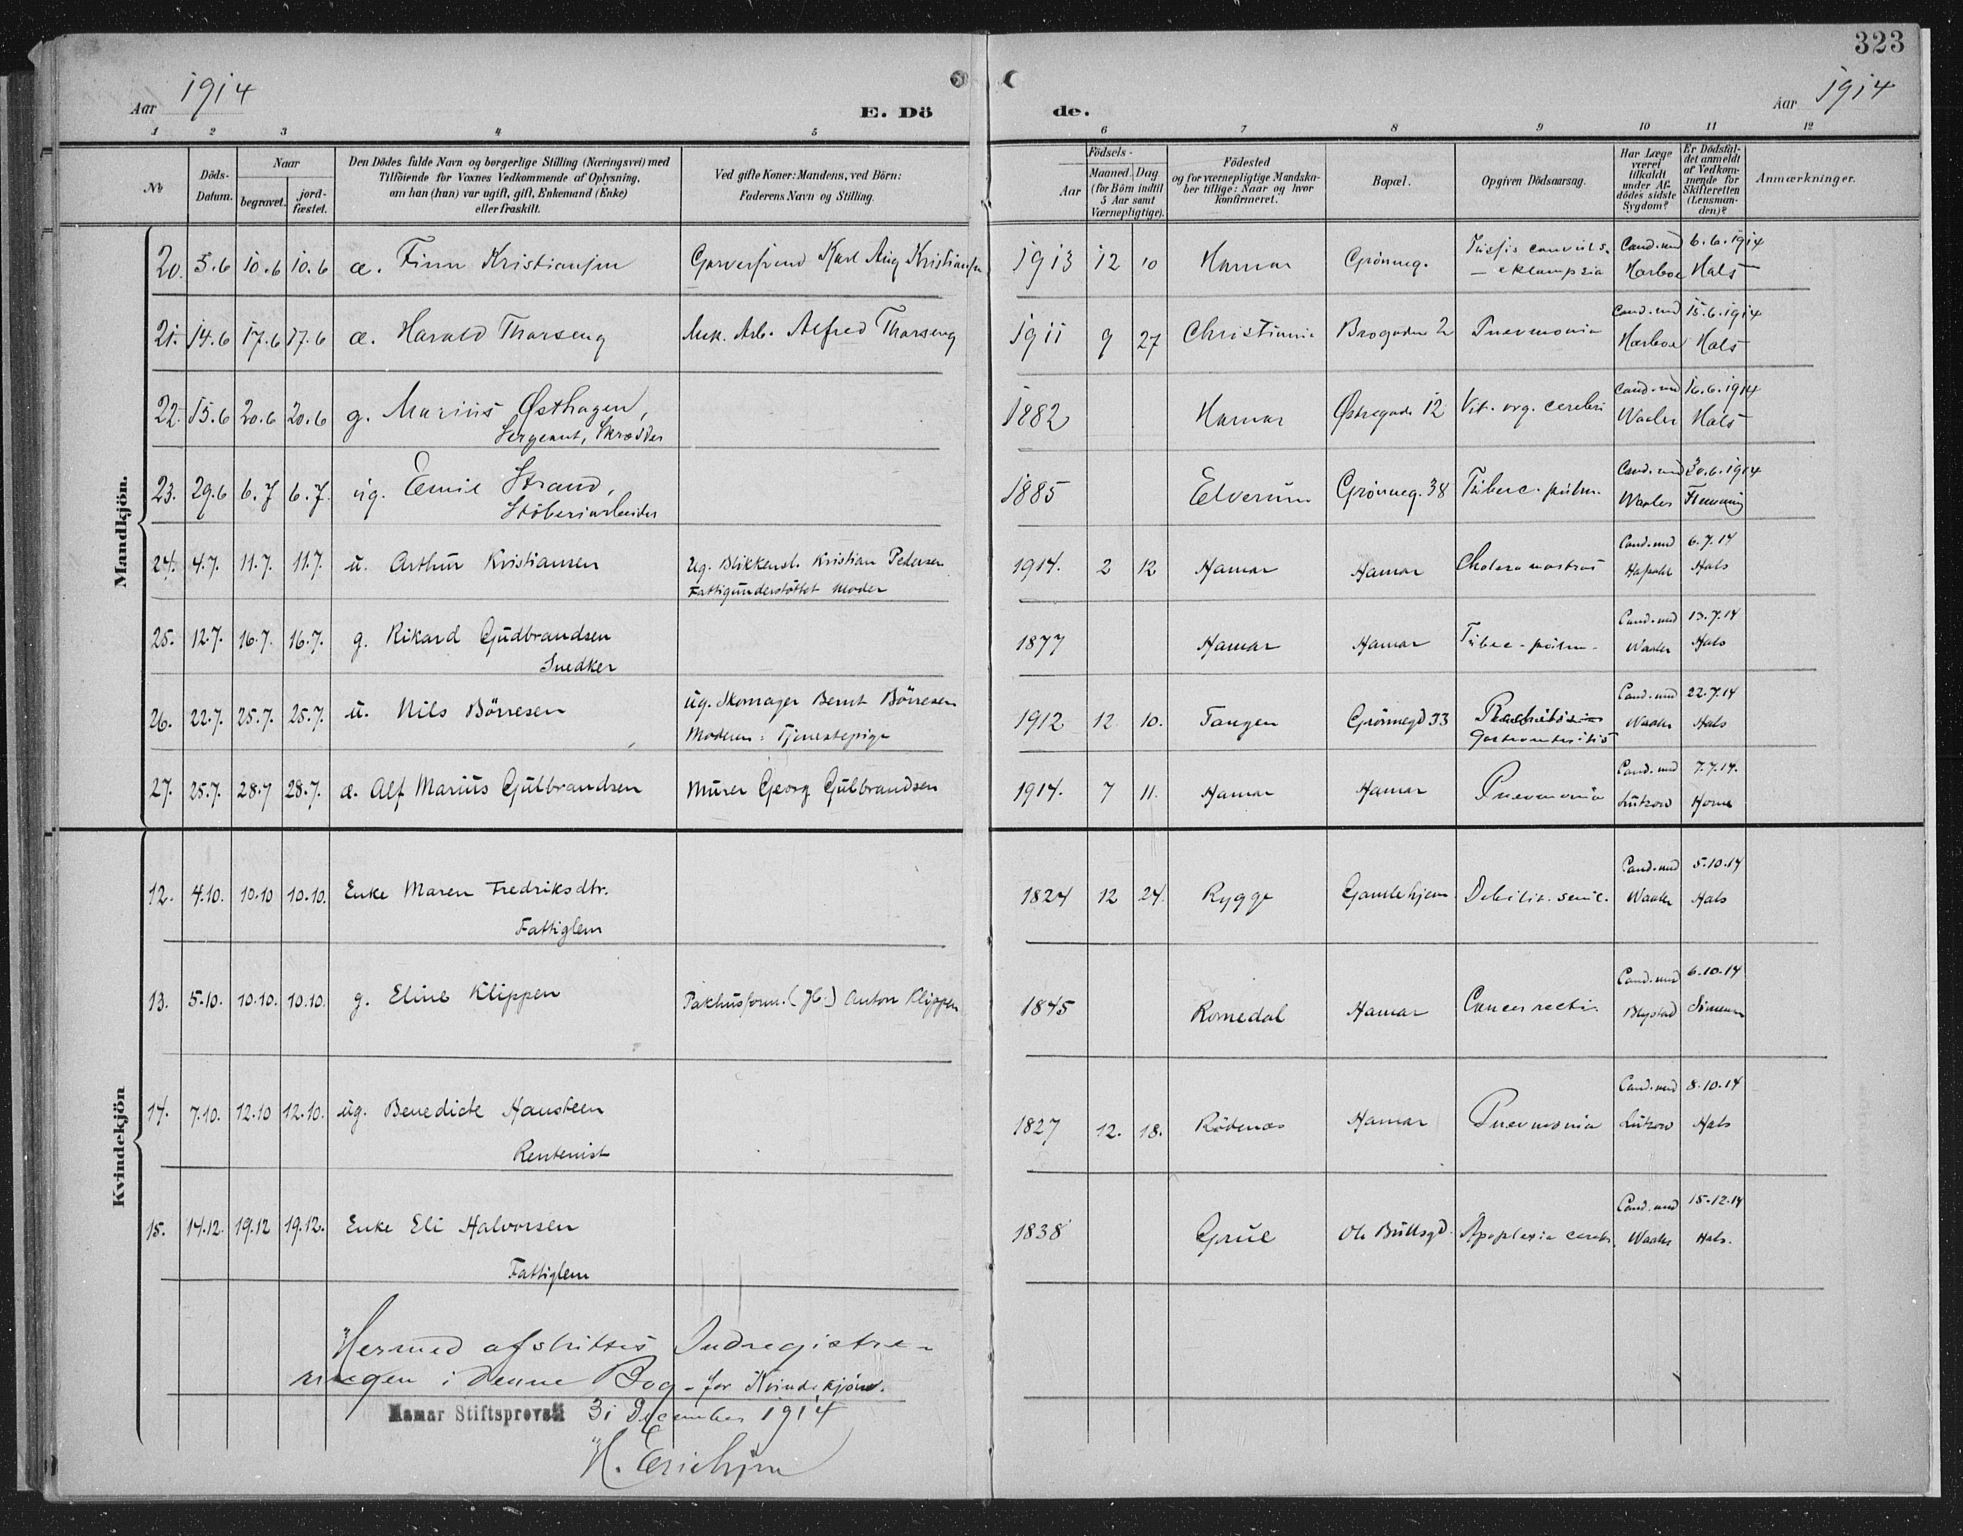 323
Aar 1914 E. Dö de. Aar 1914
1 2 3 4 5 6 7 8 9 10 11 12
No
Döds-Datum.
Naar
begravet. jordfæstet.
Den Dödes fulde Navn og borgerlige Stilling (Næringsvei) med
Tilföiende for Voxnes Vedkommende af Oplysning,
om han (hun) var ugift, gift, Enkemand (Enke)
eller fraskilt.
Ved gifte Koner: Mandens, ved Börn:
Faderens Navn og Stilling.
Födsels-
Aar
Maaned. Dag
(for Börn indtil
5 Aar samt
Værnepligtige).
Födested
og for værnepligtige Mandska-
ber tillige: Naar og hvor
konfirmeret.
Bopæl.
Opgiven Dödsaarsag.
Har Læge
været
tilkaldt
under Af-
dödes sidste
Sygdom?
Er Dödsfal-
det anmeldt
af Vedkom-
mende for
Skifteretten
(Lensman-
den)?
Anmærkninger.
Mandkjön.
20. 5.6 10.6 10.6 æ. Finn Kristiansen Karl Aug Kristiansen 1913 12 10 Hamar Grönneg. eklampsia Cand. med Harboe 6.6.1914 Hals
21. 14.6 17.6 17.6 æ. Harald Thorseng Mek. Arb. Alfred Thorseng 1911 9 27 Christiania Brogaden 2 Pneumonia Cand. med Harboe 15.6.1914 Hals
22. 15.6 20.6 20.6 g. Marius Østhagen,
Sergeant, Skrædder 1882 Hamar Østregade 12 Vit. org. cerebri Cand. med Waaler 16.6.1914 Hals
23. 29.6 6.7 6.7. ug. Emil Strand,
Stöberiarbeider 1885 Elverum Grönneg. 38 Tuberc. pulm. Cand. med Waaler 30.6.1914 Flemming
24. 4.7. 11.7. 11.7. u. Arthur Kristiansen Ug. Blikkensl. Kristian Pedersen
Fattigunderstöttet Moder 1914. 2 12 Hamar Hamar Cholera nostras Cand. med 6.7.14 Hals
25. 12.7. 16.7. 16.7. g. Rikard Gudbrandsen
Snedker 1877 Hamar Hamar Tuberc. pulm. Cand. med Waaler 13.7.14 Hals
26. 22.7. 25.7. 25.7. u. Nils Börresen ug. Skomager Bernt Börresen
Moderen: Tjenestepige 1912. 12. 10. Tangen Grönnegd 33 Gastroenteritis Cand. med Waaler 22.7.14 Hals
27. 25.7. 28.7 28.7. æ. Alf Marius Gulbrandsen Murer Georg Gulbrandsen 1914. 7 11. Hamar Hamar Pneumonia Cand. med Lützow 7.7.14. Horne
Kvindekjön
12. 4.10. 10.10 10.10. Enke Maren Fredriksdtr.
Fattiglem 1824 12 24. Rygge Gamlehjem Debilit. senil. Cand. med Waaler 5.10.14 Hals
13. 5.10. 10.10. 10.10. g. Eline Klippen Pakhusform. (Jb.) Anton Klippen 1845 Romedal Hamar Cancer recti. Cand. med Blystad 6.10.14 Simensen
14. 7.10. 12.10 12.10. ug. Benedicte Hansteen
Rentenist 1827 12. 18. Rödenæs Hamar Pneumonia Cand. med Lützow 8.10.14 Hals
15. 14.12. 19.12 19.12. Enke Eli Halvorsen
Fattiglem 1838 Grue Ole Bullsgd. Apoplexia cerebri. Cand. med Waaler 15.12.14 Hals.
Hermed afsluttes Indregistre-
ringen i denne Bog - for Kvindekjön.
Hamar Stiftsprovsti 31 December 1914
H. Erichsen